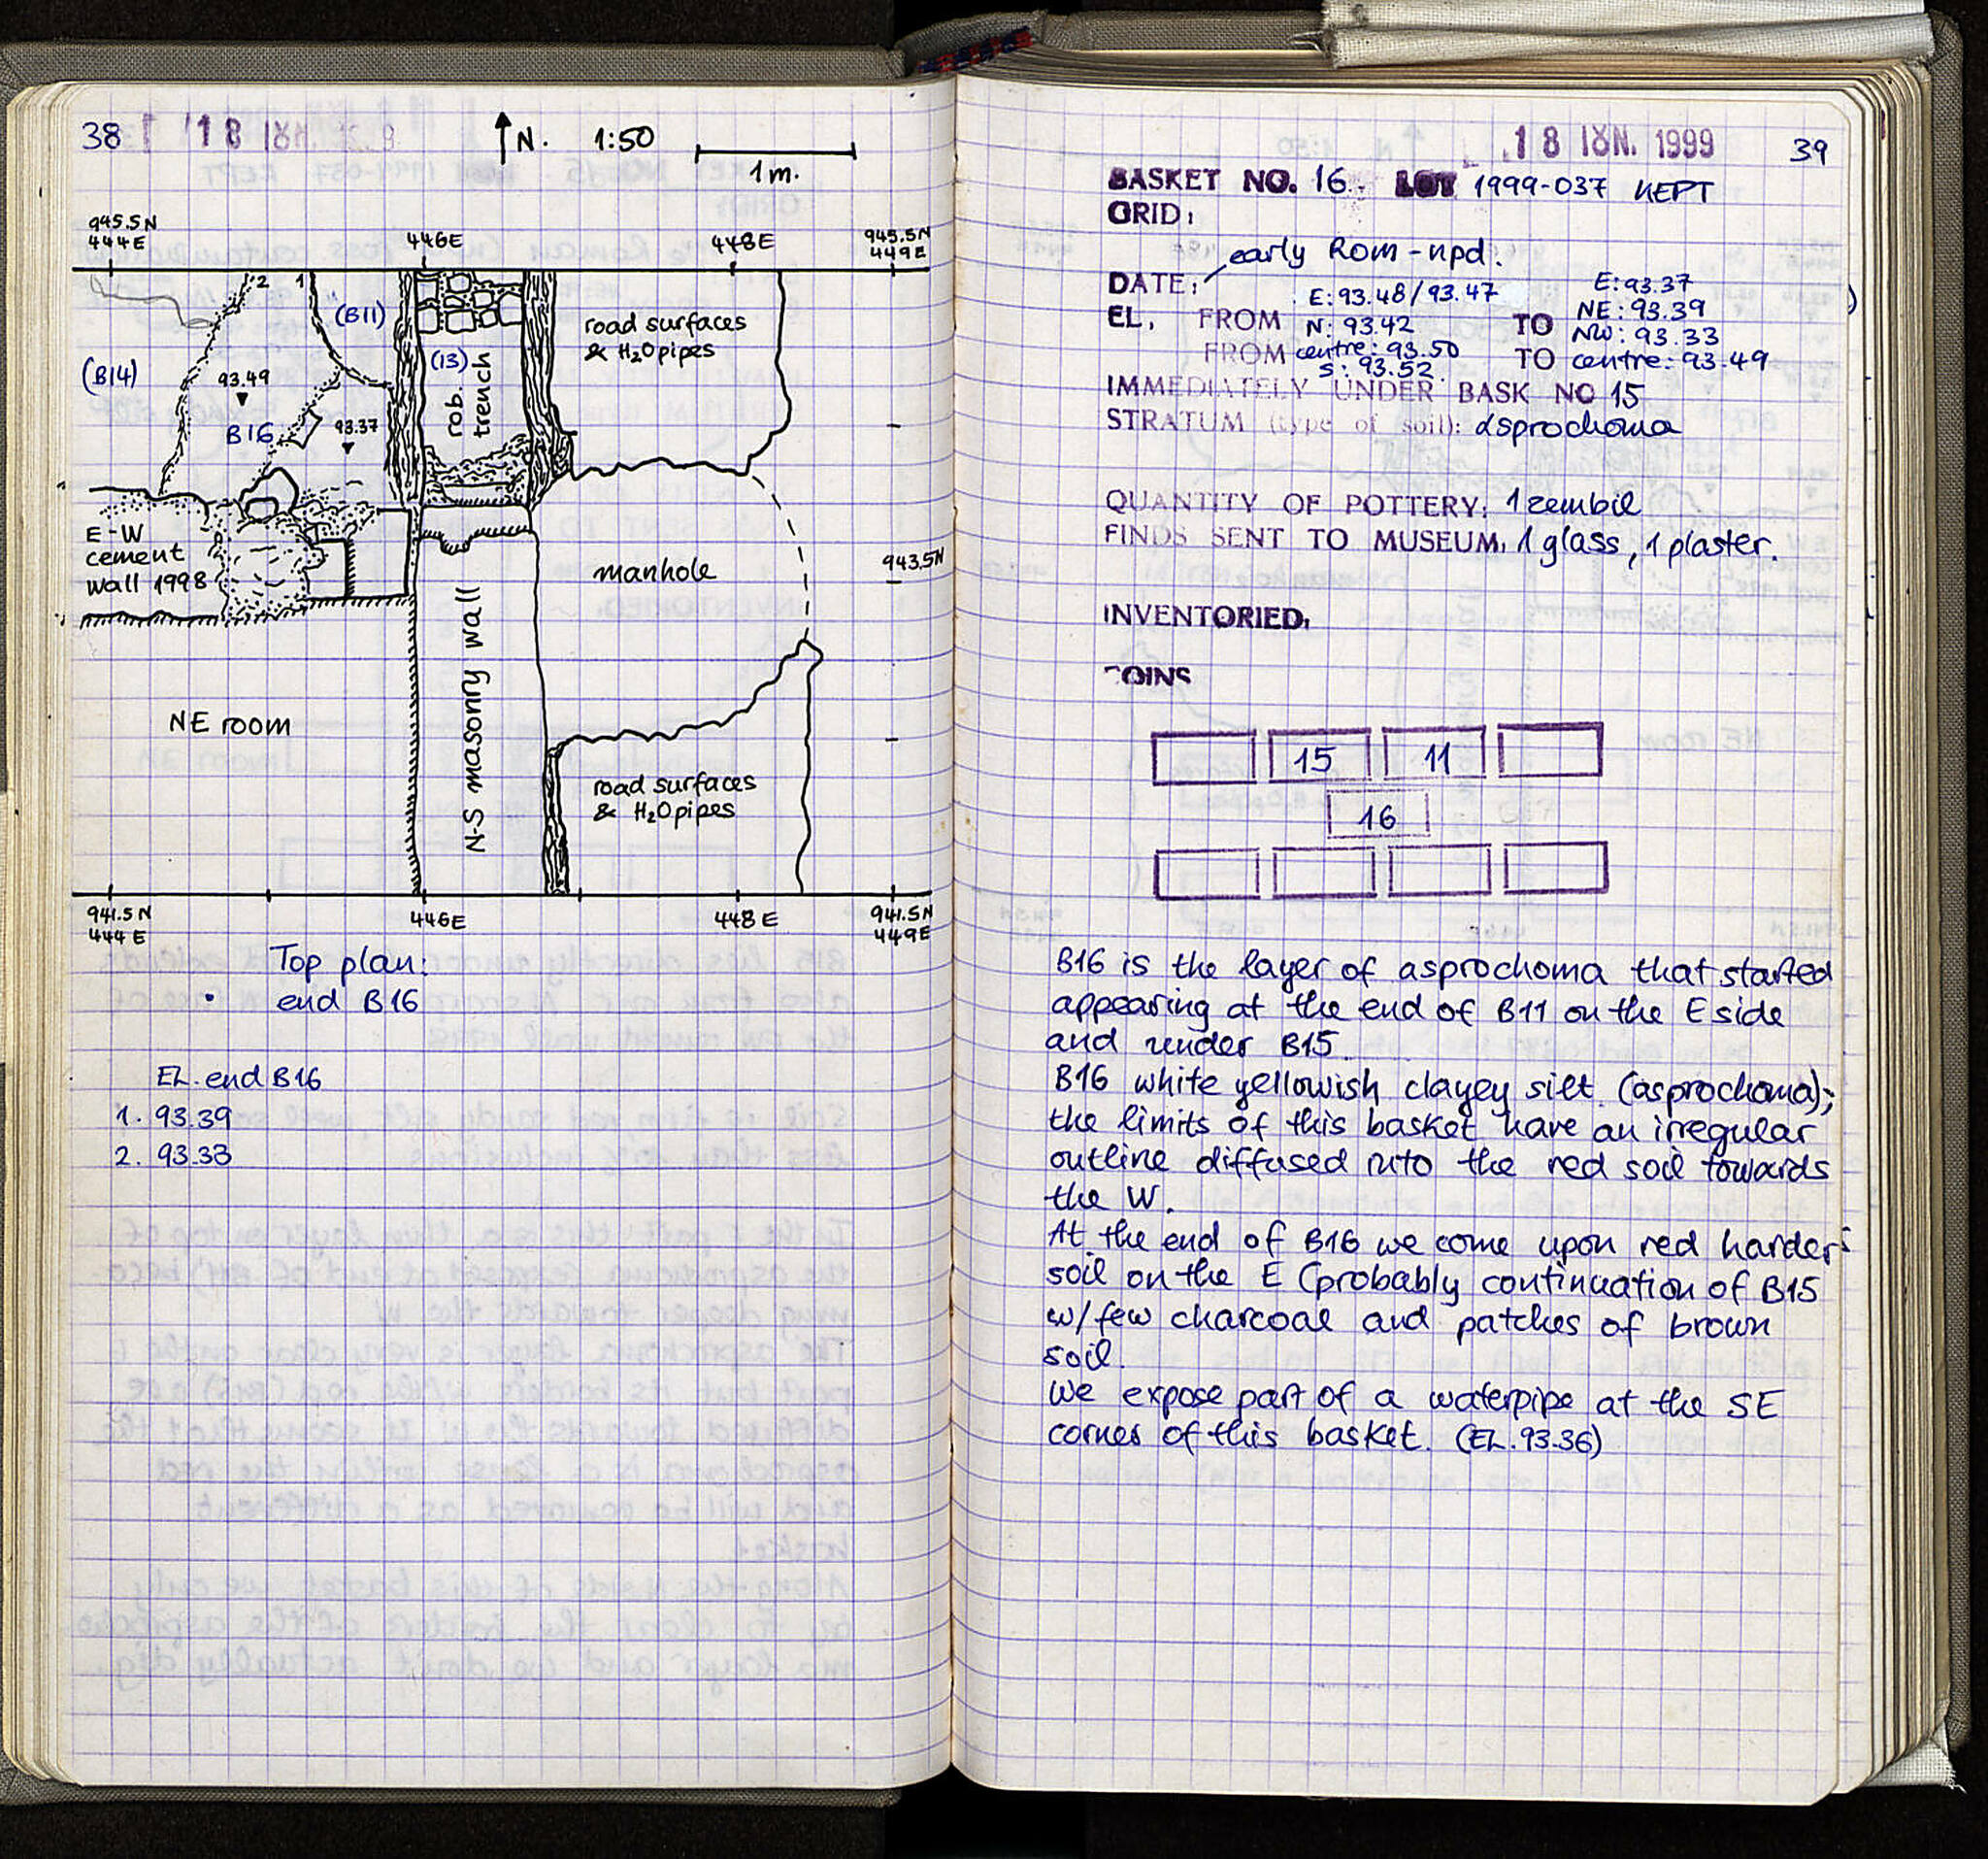 38
18 ΙΟΥΝ.
↑N. 1:50
1m.
945.5N
444E
446E
448E
945.5N
449E
2 1
(B11)
(B14)
93.49
B16
93.37
(13)
rob.
trench
road surfaces
& H₂Opipes
E-W
cement
wall 1998
manhole
943.5N
NE room
N-S masonry wall
road surfaces
& H₂Opipes
941.5N
444E
446E
448E
941.5N
449E
Top plan:
end B16
EL. end B16
1. 93.39
2. 93.33
18 ΙΟΥΝ. 1999
39
BASKET NO. 16. LOT 1999-037 KEPT
GRID:
early Rom - npd.
DATE:
E: 93.48/93.47 E: 93.37
EL. FROM N: 93.42 TO NE: 93.39
NW: 93.33
FROM centre: 93.50 TO centre: 93.49
S: 93.52
IMMEDIATELY UNDER BASK NO 15
STRATUM (type of soil): asprochoma
QUANTITY OF POTTERY: 1 zembil
FINDS SENT TO MUSEUM: 1 glass, 1 plaster.
INVENTORIED:
COINS
15 11
16
B16 is the layer of asprochoma that started
appearing at the end of B11 on the E side
and under B15.
B16 white yellowish clayey silt (asprochoma);
the limits of this basket have an irregular
outline diffused into the red soil towards
the W.
At the end of B16 we come upon red harder
soil on the E (probably continuation of B15
w/ few charcoal and patches of brown
soil.
We expose part of a waterpipe at the SE
corner of this basket. (EL. 93.36)